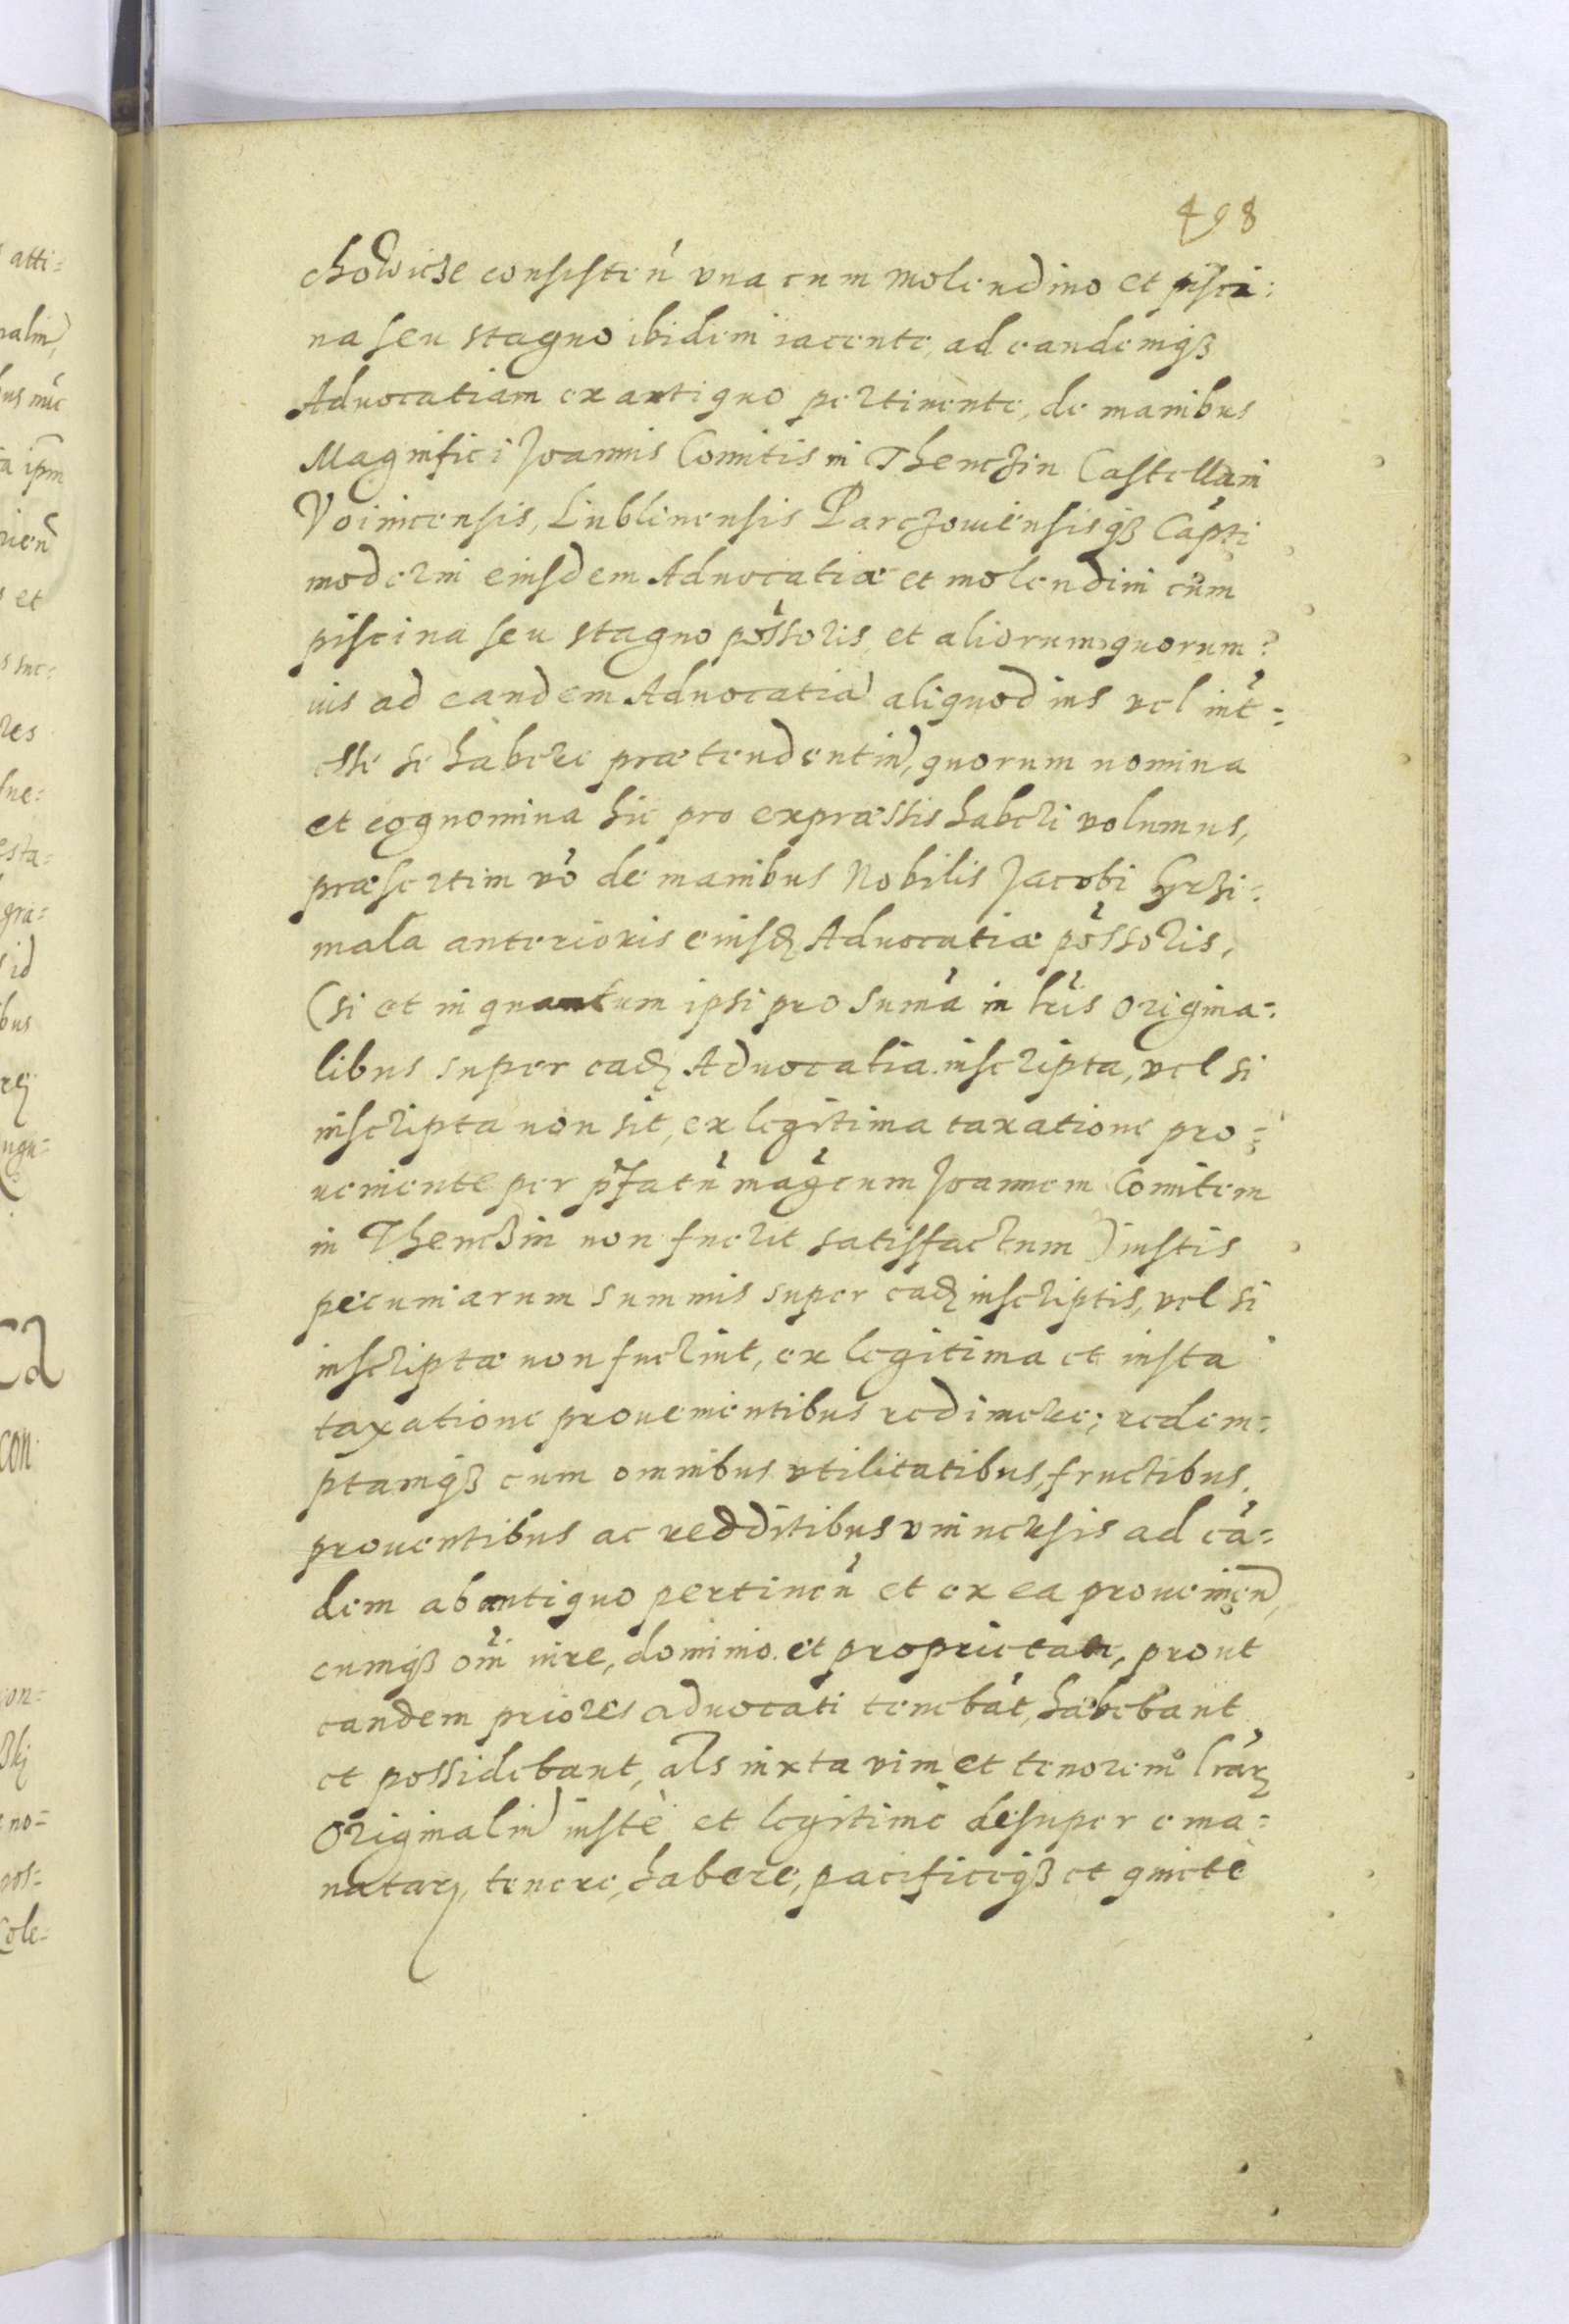 498
chowicze consisten̄ vna cum molendino et pisci:
na seu stagno ibidem iacente, ad eandemqȝ
Aduocatiam ex antiquo pertinente, de manibus
Magnifici Joannis Comitis in Thenczin Castellani
Voinicensis, Lublinensis Parczouiensisqȝ Capti
moderni eiusdem Aduocatiæ et molendini cum
piscina seu stagno possoris, et aliorum quorum:
uis ad eandem Aduocatiā aliquod ius vel int̄:
esse se habere prætendentiū, quorum nomina
et cognomina hic pro expræssis haberi volumus,
præsertim vo de manibus Nobilis Jacobi Grzi:
mala anterioris eiusdꝫ Aduocatiæ possoris,
(si et in quantum ipsi pro suma in lris origina:
libus super eadꝫ Aduocatia inscripta, vel si
inscripta non sit, ex legitima taxatione pro:
ueniente per p̄fatū magcum Joannem Comitem
in Thenczin non fuerit satisfactum) iustis
pecuniarum summis super eadꝫ inscriptis, vel si
inscriptæ non fuerint, ex legitima et iusta
taxatione prouenientibus redimere; redem:
ptamqȝ cum omnibus vtilitatibus, fructibus,
prouentibus ac redditibus vniuersis ad eā:
dem ab antiquo pertinen̄ et ex ea prouenien̄,
cumqȝ omī iure, dominio et proprietate, prout
eandem priores aduocati tenebāt, habebant
et possidebant, als iuxta vim et tenorem lrarꝫ
originaliū iustè et legitime desuper ema:
natarꝫ, tenere, habere, pacificeqȝ et quietè
atti: